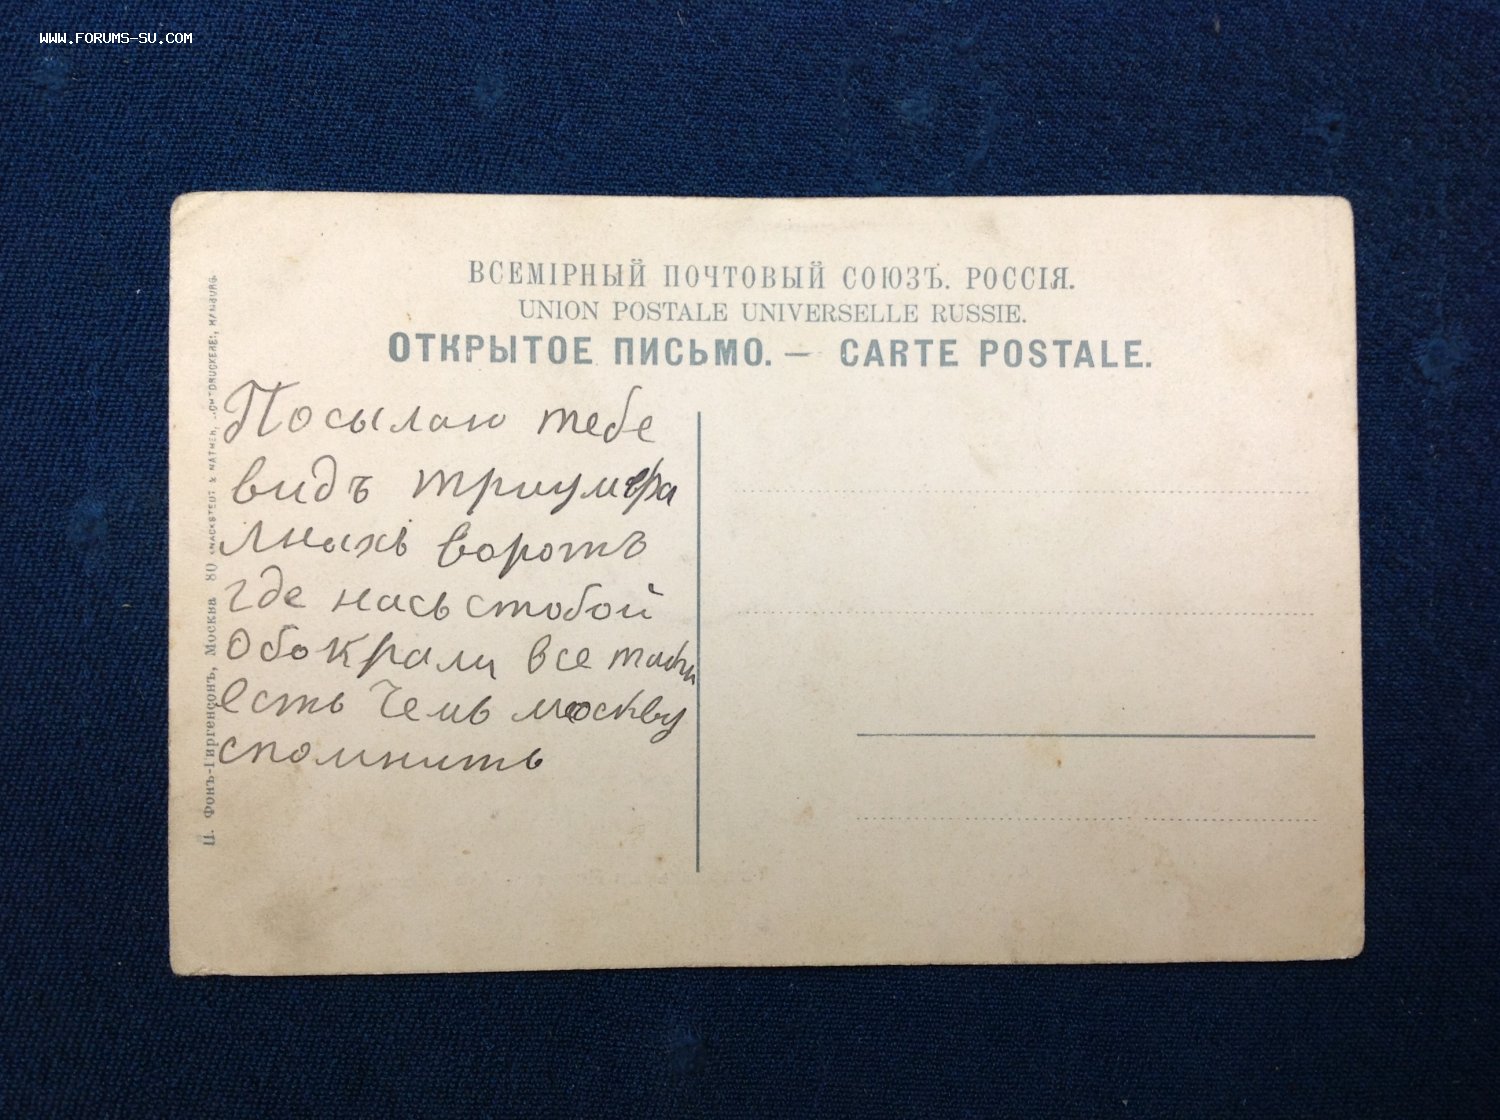 WWW.FORUMS-SU.COM
ВСЕМІРНЫЙ ПОЧТОВЫЙ СОЮЗЪ. РОССІЯ.
UNION POSTALE UNIVERSELLE RUSSIE.
ОТКРЫТОЕ ПИСЬМО. — CARTE POSTALE.
Посылаю тебе
видъ триумфа
лнахъ воротъ
где насъ стобой
обокрали все таки
есть Чемъ москву
спомнить
Ц. Фонъ-Гиргенсонъ, Москва 80 KNACKSTEDT & NÄTHER, LICHTDRUCKEREI, HAMBURG.